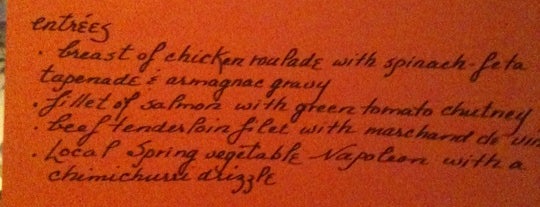 entrées
• breast of chicken roulade with spinach-feta
tapenade & armagnac gravy
• fillet of salmon with green tomato chutney
• beef tenderloin filet with marchand de vin
• Local Spring vegetable Napoleon with a
chimichurri drizzle